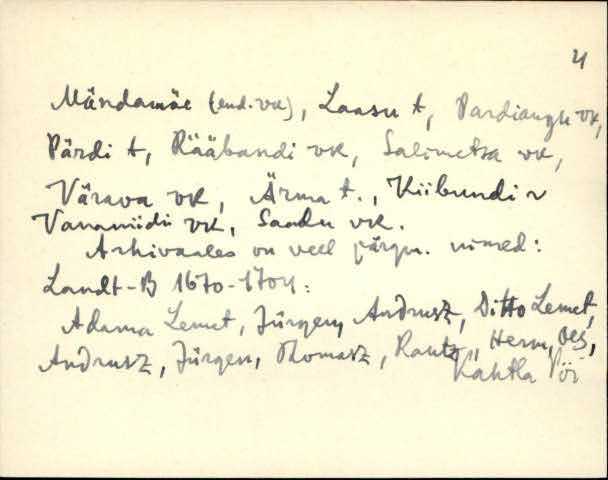 4
Mändamäe (end. vk), Laasu t, Pardiaugu vk,
Pärdi t, Rääbandi vk, Salimetsa vk,
Värava vk, Ärma t., Kiibundi v
Vanamiidi vk, Saadu vk.
Arhivaales on veel järgm. nimed:
Landt-B 1670-1704:
Adama Lemet, Jürgen, Andrusz, Ditto Lemet,
Andrusz, Jürgen, Thomasz, Hem,
Kahtla Pöi